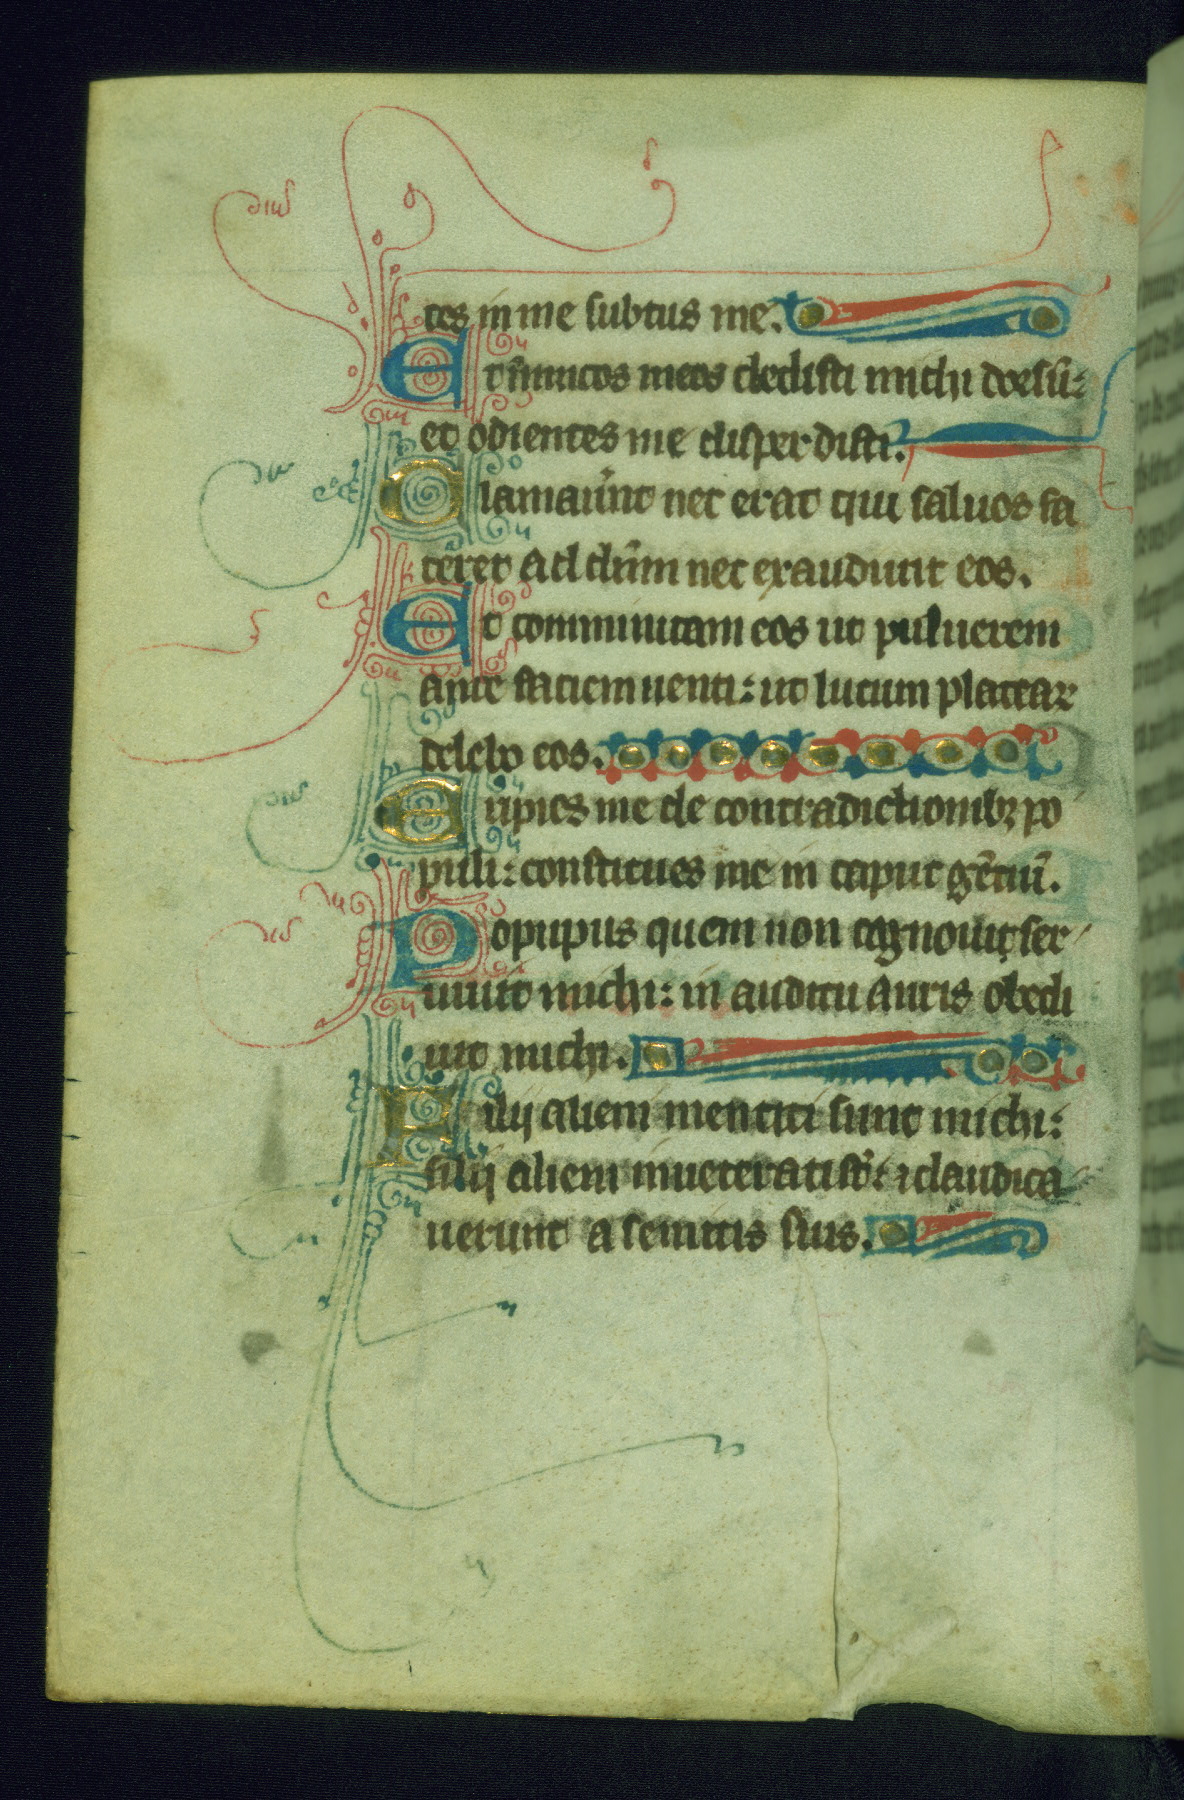 tes in me subtus me.
Et inimicos meos dedisti michi dorsū:
et odientes me disperdisti.
Clamaūnt nec erat qui saluos fa
ceret ad dn̄m nec exaudiuit eos.
Et comminuam eos ut puluerem
ante faciem uenti: ut lutum platear
delebo eos.
Eripies me de contradictionibꝫ po
puli: constitues me in caput gētiū.
Popupus quem non cognouit ser
uiuit michi: in auditu auris obedi
uit michi.
Filij alieni mentiti sunt michi:
filij alieni inueterati sūt: ⁊ claudica
uerunt a semitis suis.